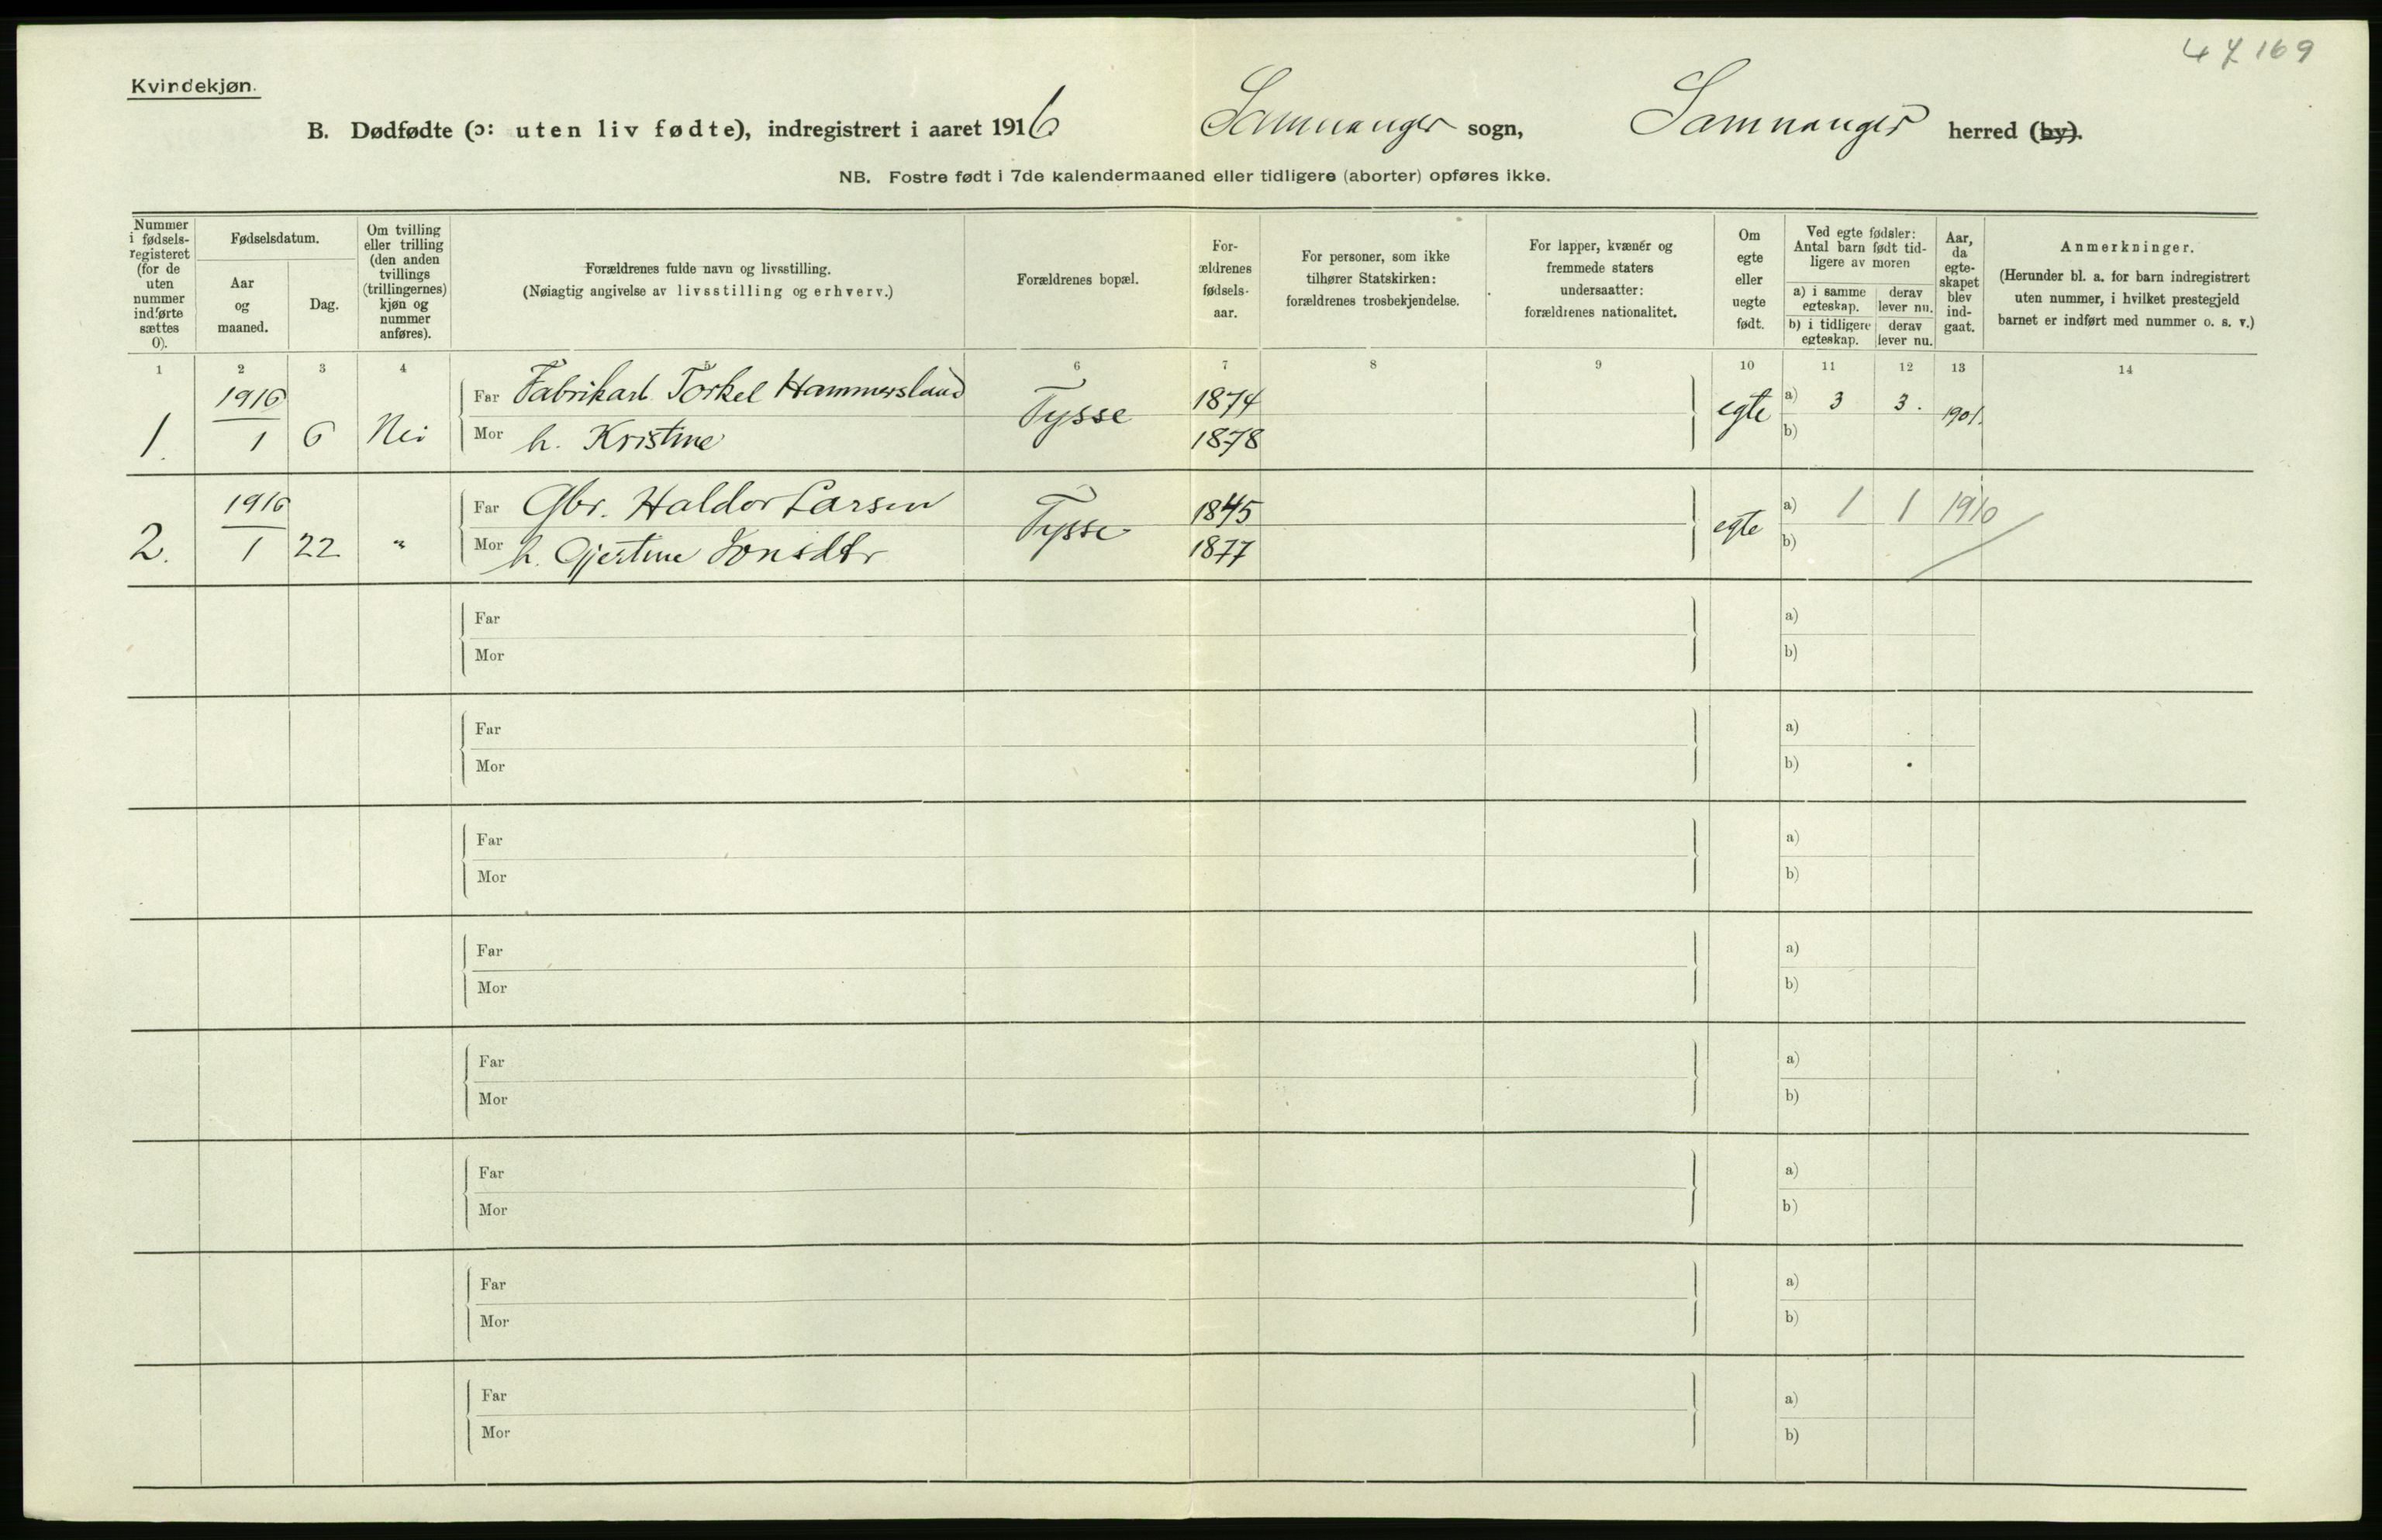 47 169
Kvindekjøn.
B. Dødfødte (ɔ: uten liv fødte), indregistrert i aaret 1916 Samnanger sogn, Samnanger herred (by).
NB. Fostre født i 7de kalendermaaned eller tidligere (aborter) opføres ikke.
Nummer
i fødsels-
registeret
(for de
uten
nummer
indførte
sættes
0).
Fødselsdatum.
Aar
og
maaned.
Dag.
Om tvilling
eller trilling
(den anden
tvillings
(trillingernes)
kjøn og
nummer
anføres).
Forældrenes fulde navn og livsstilling.
(Nøiagtig angivelse av livsstilling og erhverv.)
Forældrenes bopæl.
For-
ældrenes
fødsels-
aar.
For personer, som ikke
tilhører Statskirken:
forældrenes trosbekjendelse.
For lapper, kvæner og
fremmede staters
undersaatter:
forældrenes nationalitet.
Om
egte
eller
uegte
født.
Ved egte fødsler:
Antal barn født tid-
ligere av moren
a) i samme
egteskap.
derav
lever nu.
b) i tidligere
egteskap.
derav
lever nu.
Aar,
da
egte-
skapet
blev
ind-
gaat.
Anmerkninger.
(Herunder bl. a. for barn indregistrert
uten nummer, i hvilket prestegjeld
barnet er indført med nummer o. s. v.)
1 2 3 4 5 6 7 8 9 10 11 12 13 14
1. 1916 1 6 Nei
Far Fabrikarb. Torkel Hammersland Tysse 1874 egte a) 3 3. 1901.
Mor h. Kristine 1878 b)
2. 1916 1 22 "
Far Gbr. Haldor Larsen Tysse 1845 egte a) 1 1 1910
Mor h. Gjertine Jonsdtr 1877 b)
Far a)
Mor b)
Far a)
Mor b)
Far a)
Mor b)
Far a)
Mor b)
Far a)
Mor b)
Far a)
Mor b)
Far a)
Mor b)
Far a)
Mor b)